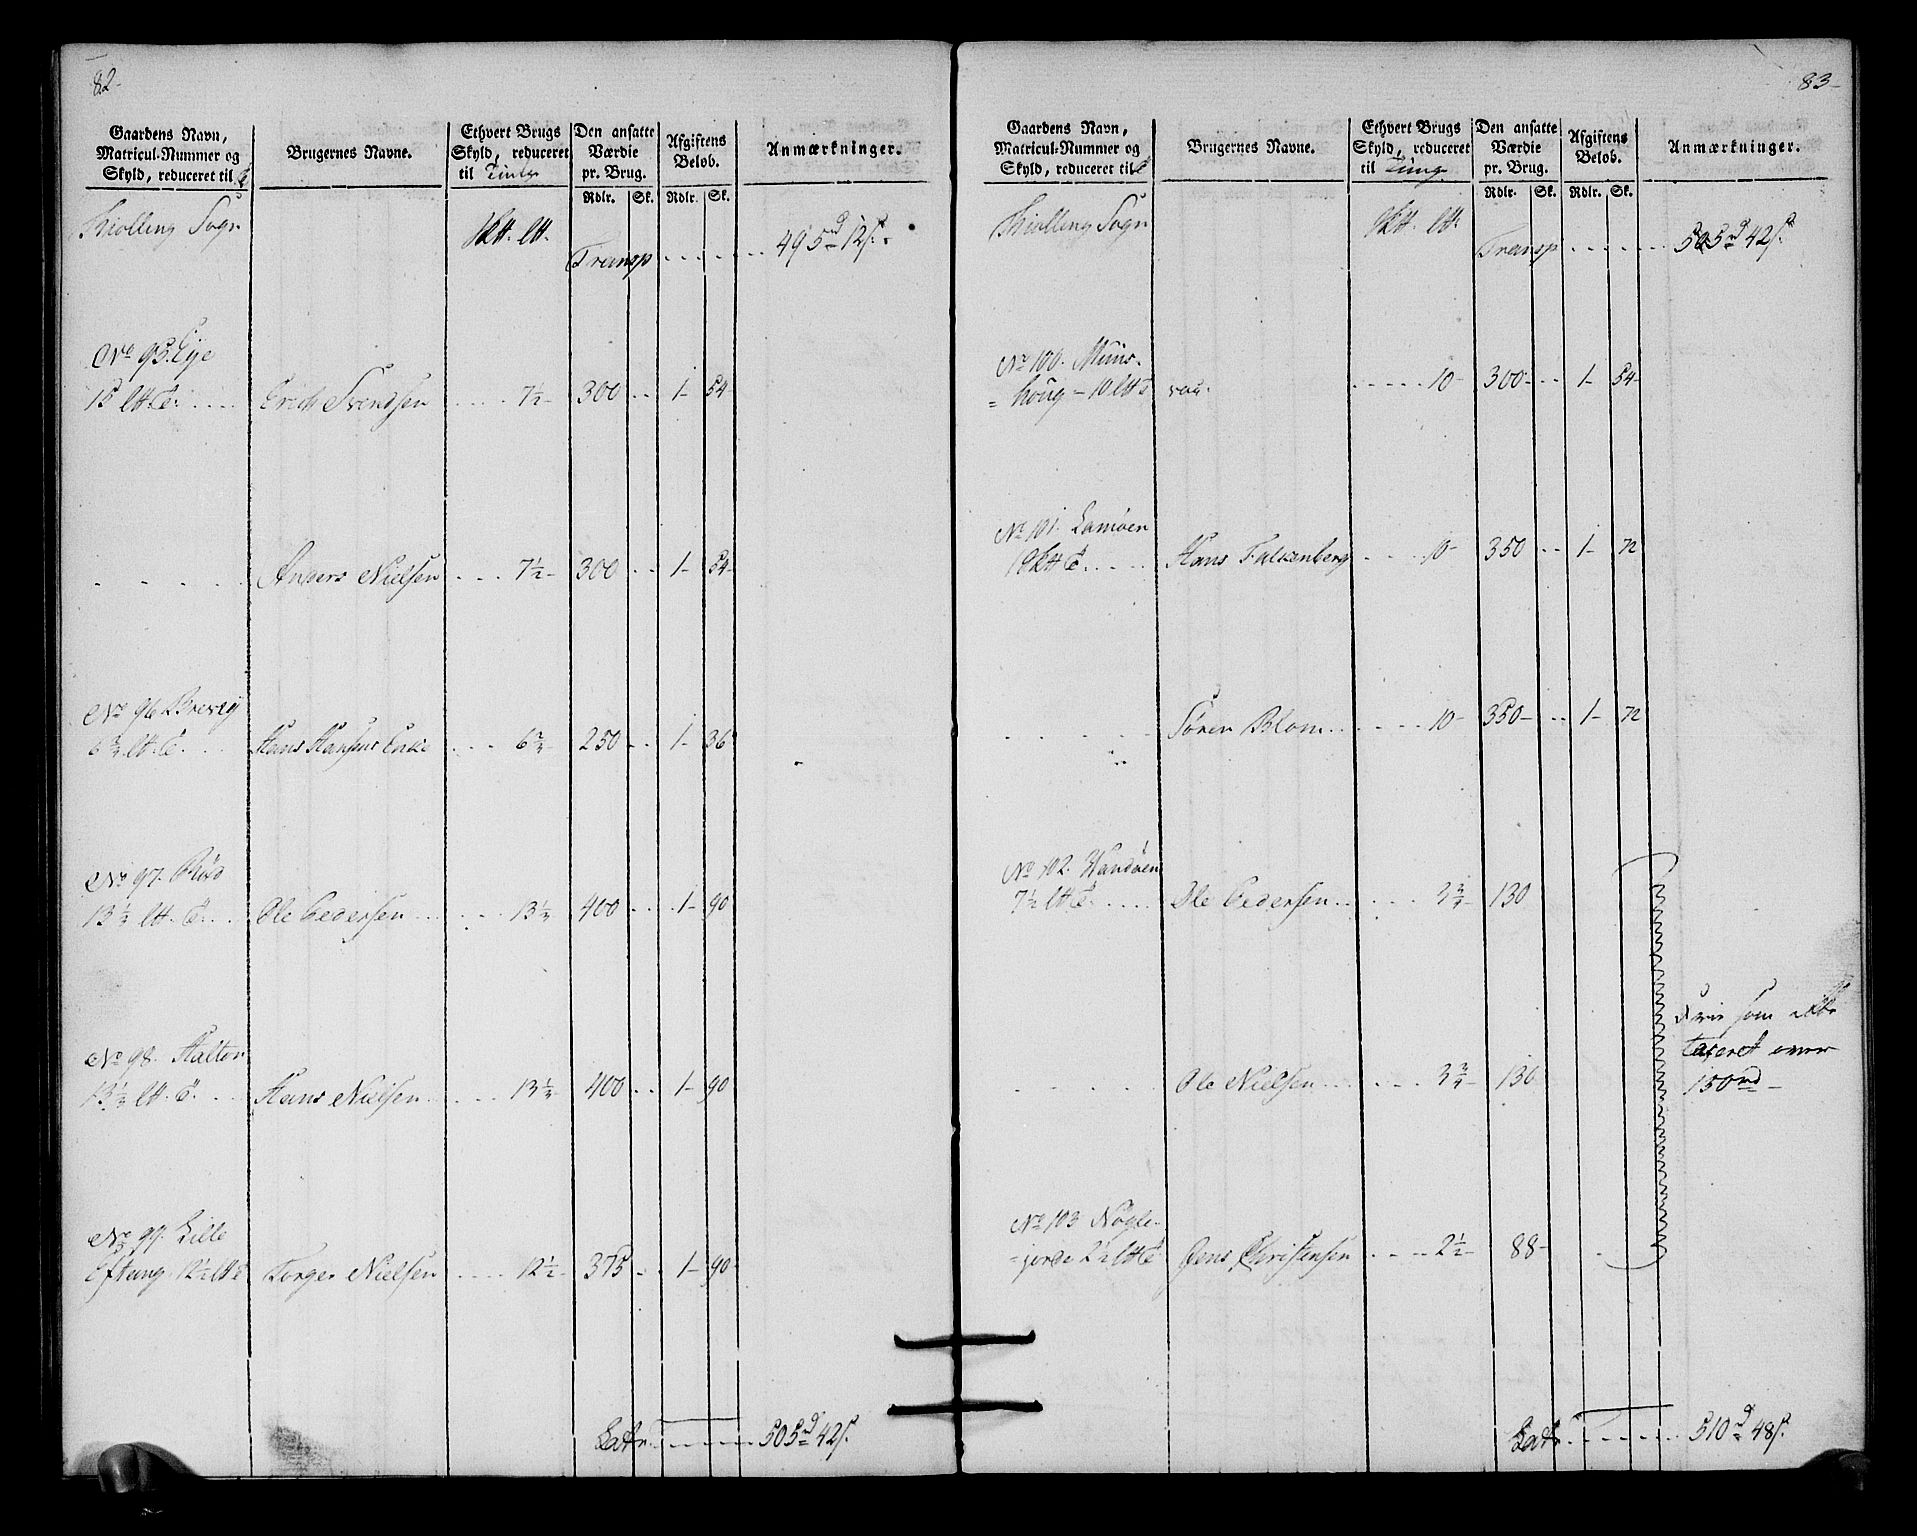 82-
Gaardens Navn, Matricul-Nummer og Skyld, reduceret til
Brugernes Navne.
Ethvert Brugs Skyld, reduceret til Tunge
Den ansatte Værdie pr. Brug.
Afgiftens Belob.
Anmærkninger.
Rdlr. Sk. Rdlr. Sk.
Kiølling Sogn
Transp . . . . . . 495 12
No 95. Eye
15 . . . . Erich Svendsen . . . . 7½- 300 . . 1- 54-
. . . . . Anders Nielsen . . . 7½- 300 . . 1- 54-
No 96 Brevig
6¾ . . . Hans Hansens Enke . . . 6¾ 250 . . 1- 36
No 97. Røed
13⅓ . . . Ole Pedersen . . . . 13⅓ 400 . . 1- 90
No 98. Halton
13⅓ . . . Hans Nielsen . . . . 13⅓ 400 . . 1- 90
No 99. Lille
Eftang. 12½ Torger Nielsen . . . . 12½- 375 . . 1- 90
Latr. . . . . . . 505 42
83-
Gaardens Navn, Matricul-Nummer og Skyld, reduceret til
Brugernes Navne.
Ethvert Brugs Skyld, reduceret til Tunge
Den ansatte Værdie pr. Brug.
Afgiftens Belob.
Anmærkninger.
Rdlr. Sk. Rdlr. Sk.
Kiølling Sogn
Transp . . . . . . 505 42
No 100. Muus-
= houg - 10 . . . . . 10- 300- . . 1- 54-
No 101. Lamøen
. . . . Hans Falkenberg . . . . 10- 350 . . 1- 72
. . . . . Søren Blom . . . . . 10- 350- . . 1- 72
No 102. Vandøen
7½ . . . . Ole Pedersen . . . . . 3¾- 130
. . . . . Ole Nielsen . . . . . 3¾- 130
Frie som ikke
taxeret over
150
No 103 Nøgle-
= jorde Jens Christensen . . . . 2½- 88-
Latr. . . . . . . 510 48